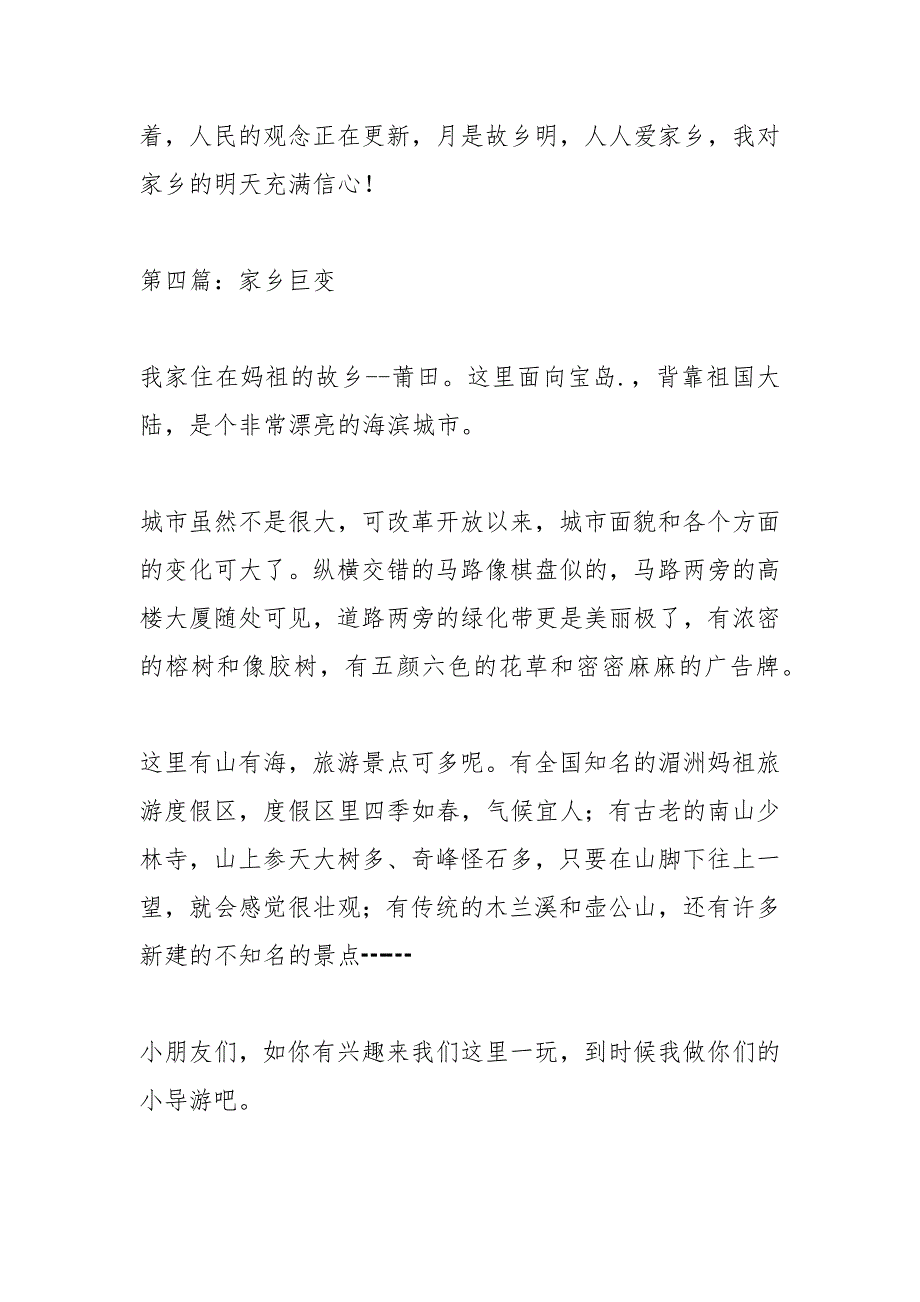 着，人民的观念正在更新，月是故乡明，人人爱家乡，我对
家乡的明天充满信心！
第四篇：家乡巨变
我家住在妈祖的故乡--莆田。这里面向宝岛.，背靠祖国大
陆，是个非常漂亮的海滨城市。
城市虽然不是很大，可改革开放以来，城市面貌和各个方面
的变化可大了。纵横交错的马路像棋盘似的，马路两旁的高
楼大厦随处可见，道路两旁的绿化带更是美丽极了，有浓密
的榕树和像胶树，有五颜六色的花草和密密麻麻的广告牌。
这里有山有海，旅游景点可多呢。有全国知名的湄洲妈祖旅
游度假区，度假区里四季如春，气候宜人；有古老的南山少
林寺，山上参天大树多、奇峰怪石多，只要在山脚下往上一
望，就会感觉很壮观；有传统的木兰溪和壶公山，还有许多
新建的不知名的景点------
小朋友们，如你有兴趣来我们这里一玩，到时候我做你们的
小导游吧。